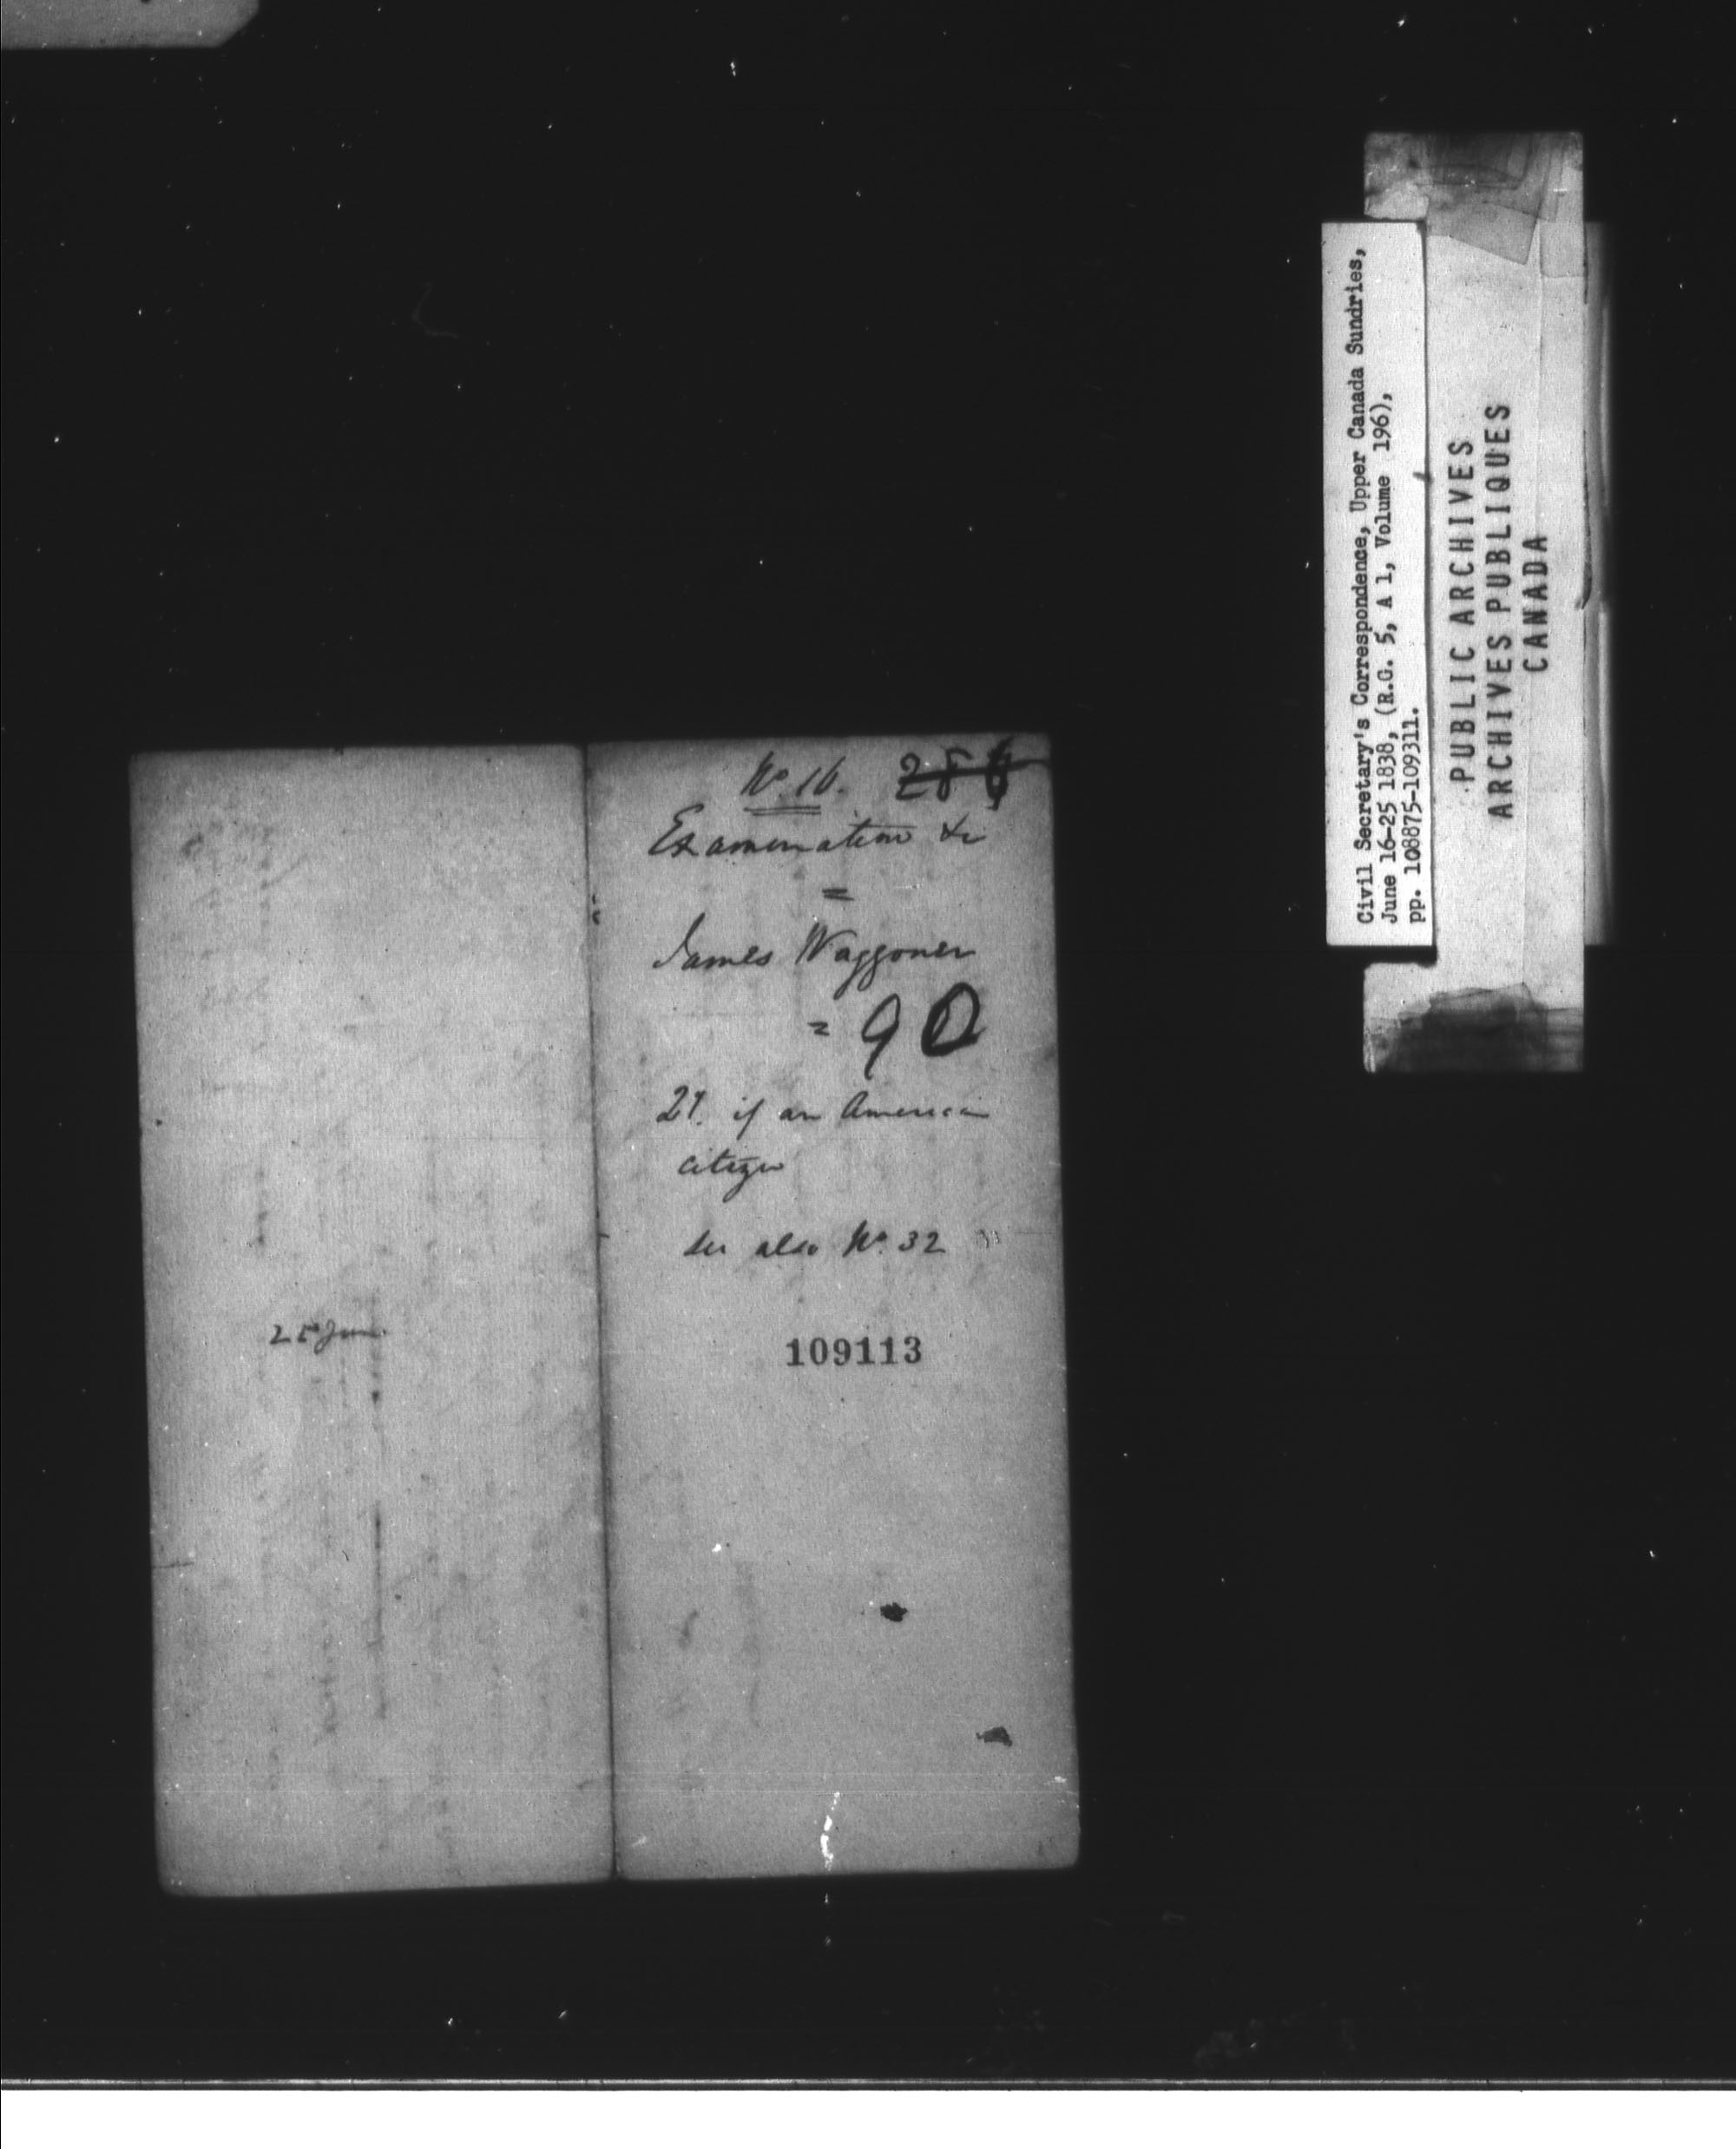 No. 16. 286
Examination &c
=
James Waggoner
= 90
if an American
citizen
see also No. 32
109113
25 June
Civil Secretary's Correspondence, Upper Canada Sundries,
June 16-25 1838, (R.G. 5, A 1, Volume 196),
pp. 108875-109311.
PUBLIC ARCHIVES
ARCHIVES PUBLIQUES
CANADA